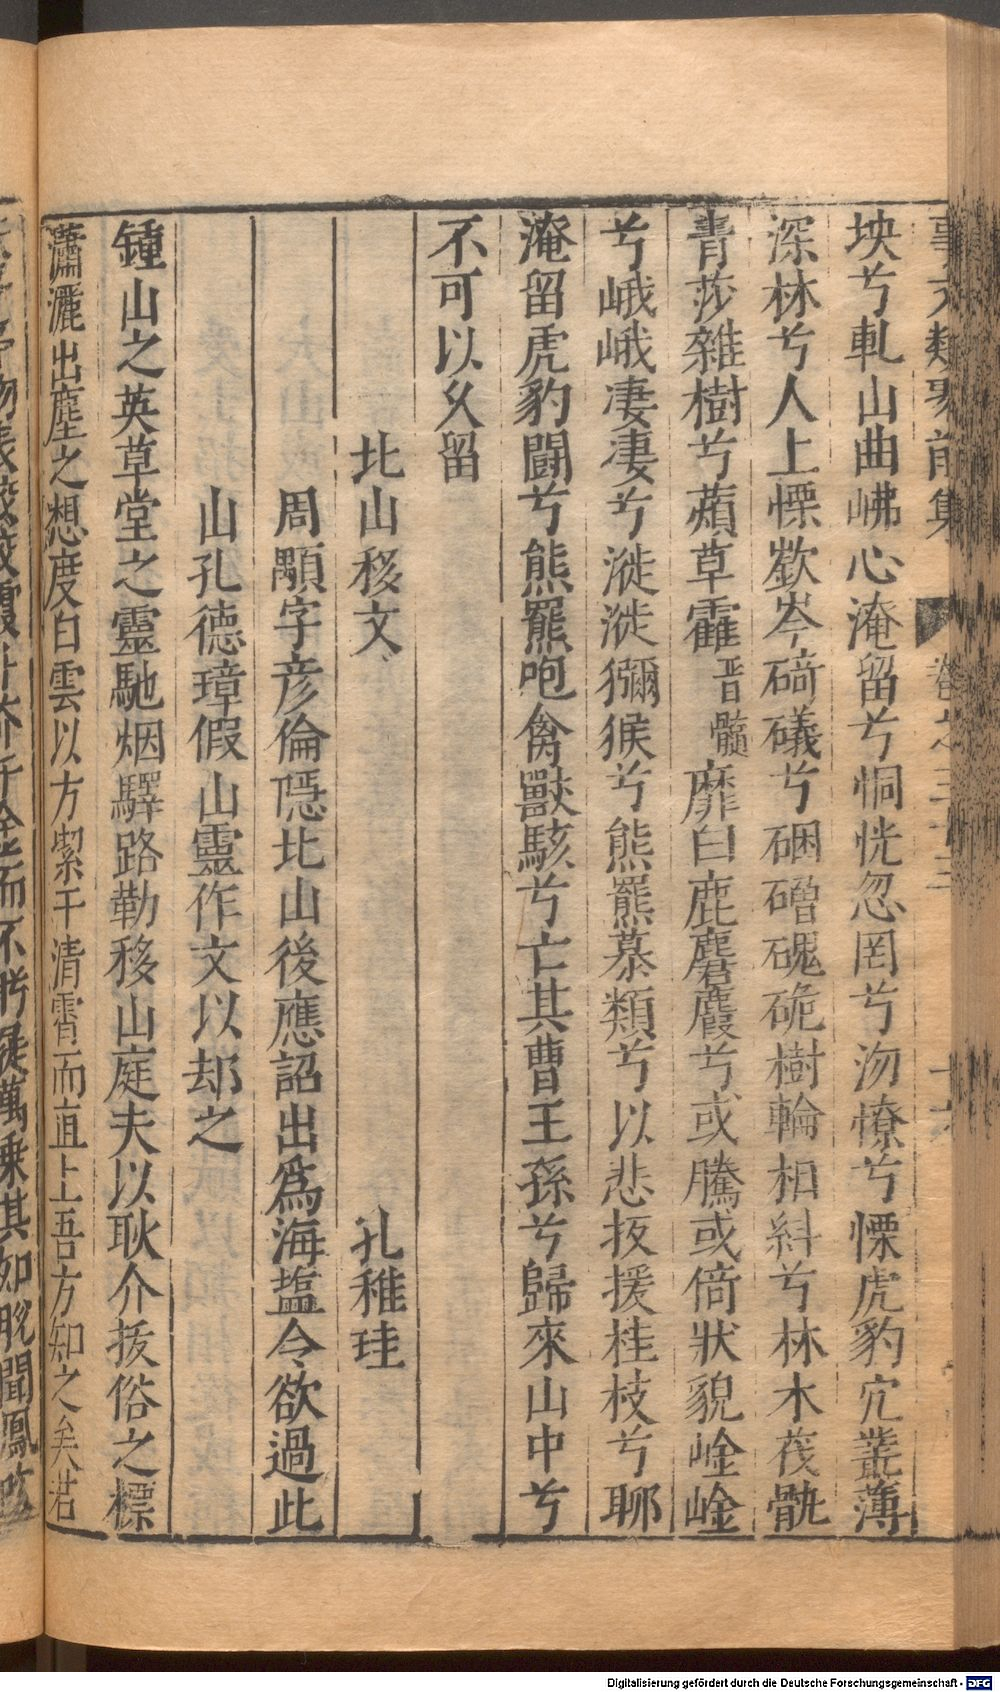 事文類聚前集 卷之三十三
坱兮軋山曲岪心淹留兮恫恍忽罔兮沕憭兮慄虎豹穴叢薄
深林兮人上慄嶔岑碕礒兮硱磳磈硊樹輪相糾兮林木茷骫
青莎雜樹兮薠草靃音髓靡白鹿麏麚兮或騰或倚狀貌崯崯
兮峨峨凄凄兮漇漇獼猴兮熊羆慕類兮以悲扳援桂枝兮聊
淹留虎豹鬪兮熊羆咆禽獸駭兮亡其曹王孫兮歸來山中兮
不可以久留
北山移文 孔稚珪
周顒字彦倫隱北山後應詔出爲海塩令欲過此
山孔德璋假山靈作文以却之
鍾山之英草堂之靈馳烟驛路勒移山庭夫以耿介拔俗之標
瀟灑出塵之想度白雲以方㓗干清霄而直上吾方知之矣若
芥千金而不眄屣萬乗其如脫聞鳳吹
Digitalisierung gefördert durch die Deutsche Forschungsgemeinschaft - DFG